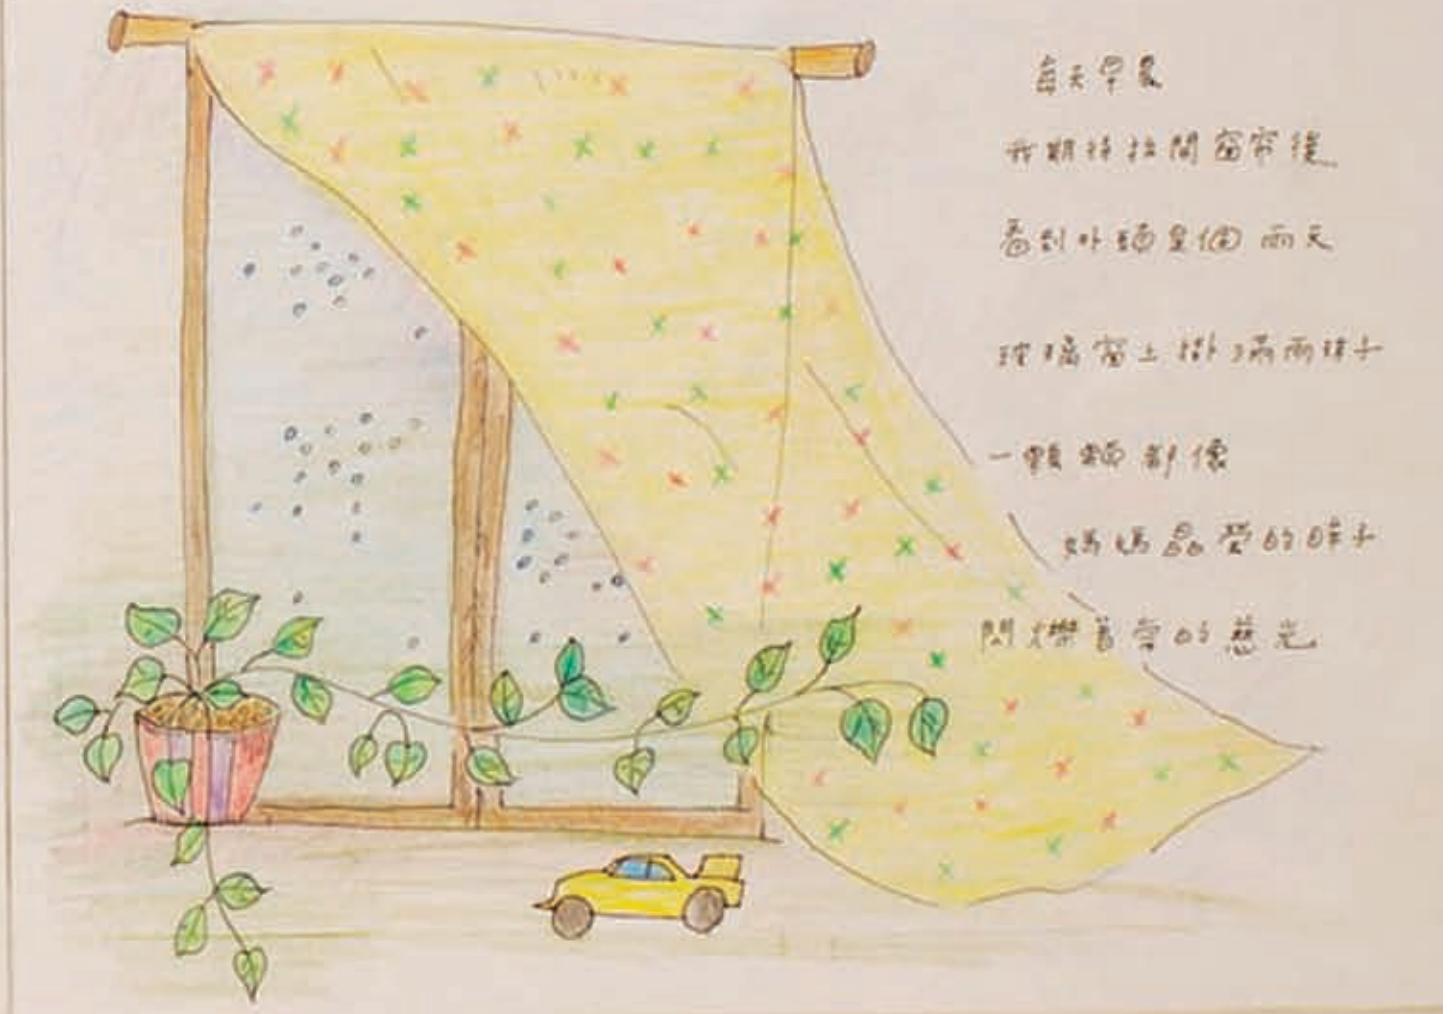 每天早晨
我期待拉開窗帘後
看到外頭是個雨天
玻璃窗上掛滿雨珠子
一顆顆都像
媽媽晶瑩的眸子
閃爍著的慈光